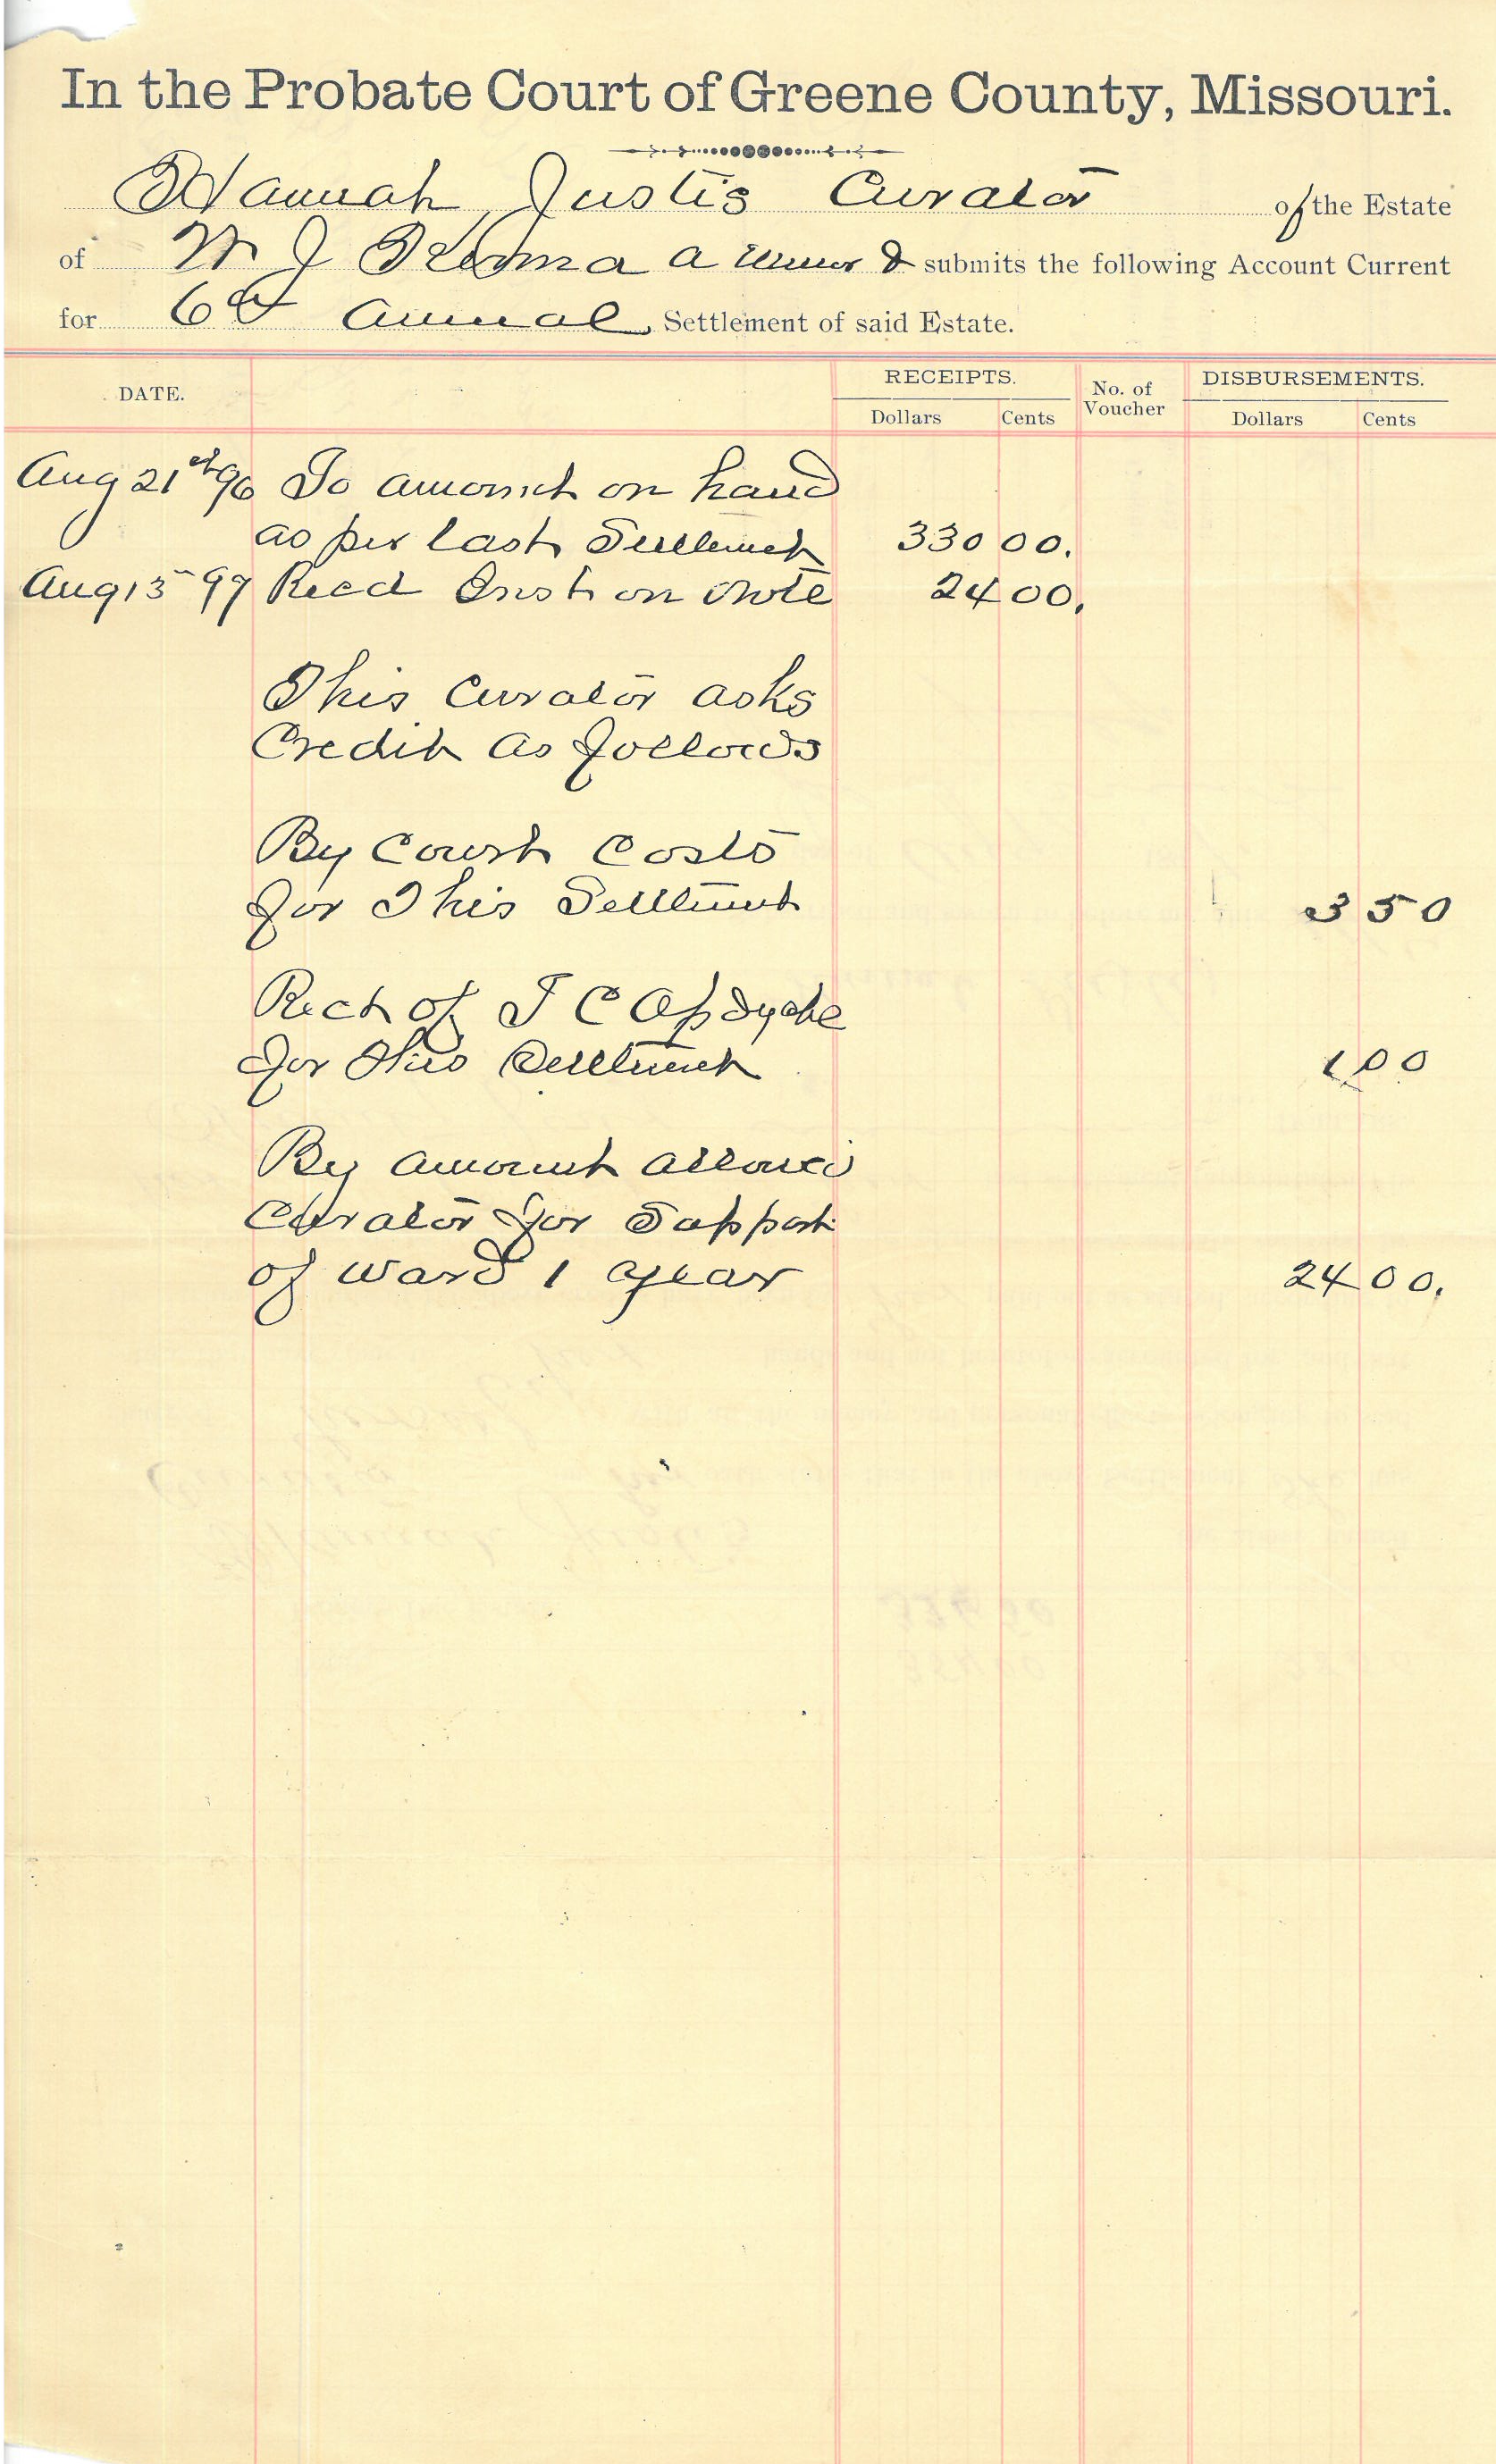 In the Probate Court of Greene County, Missouri.
Hannah Justis Curator of the Estate
of W J a minor & submits the following Account Current
for 6th Annual Settlement of said Estate.
DATE. RECEIPTS. No. of Voucher DISBURSEMENTS.
Dollars Cents Dollars Cents
Aug 21st 96 To amount on hand
as per last Settlement 330 00.
Aug 13 97 Recd Inst on Note 24 00.
This Curator asks
Credit as follows
By Court Costs
for This Settlment 3 50
Rect of J C Opdycke
for this Settlment 1 00
By amount allowed
Curator for Support
of ward 1 year 24 00.